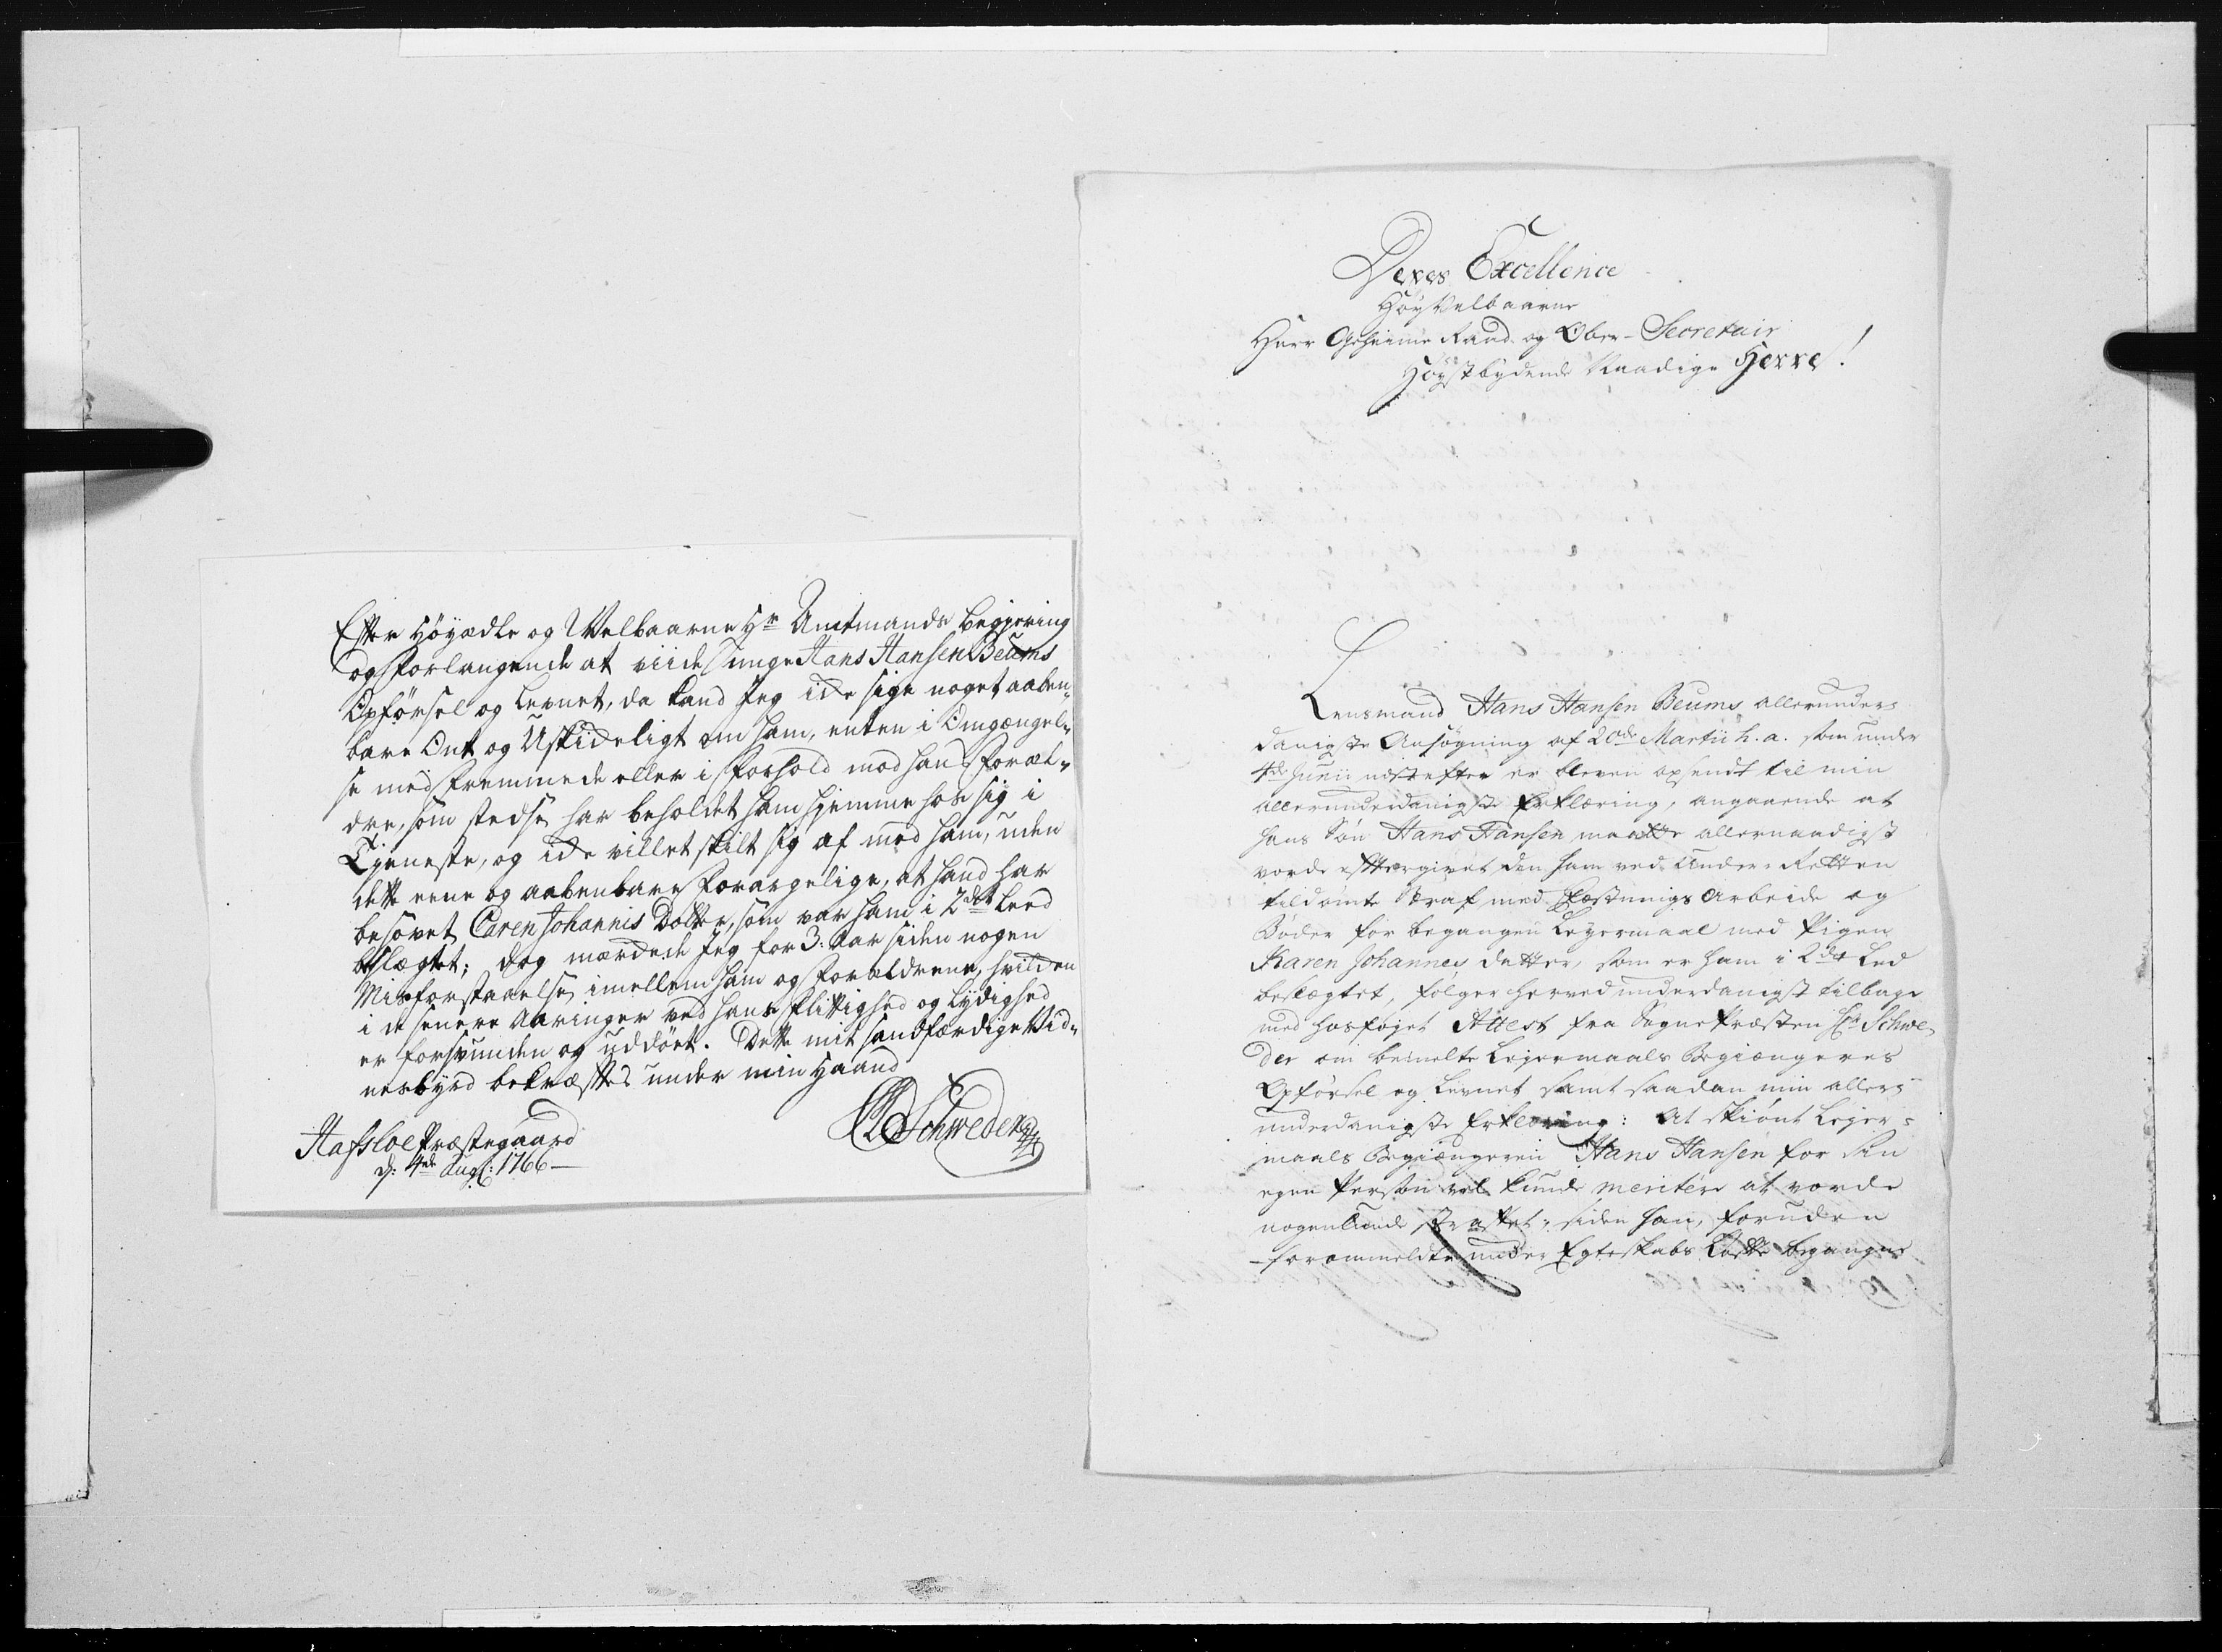 Efter Höyædle og Welbaarne Hr Amtmands begjering
og forlangende at viide unge Hans Hansen Beums
Opförsel og Levnet, da kand Jeg icke sige noget aaben-
bare Ont og Uskickeligt om ham, enten i Omgængel-
se med fremmede eller i forhold mod hans foræl-
dre, som stedse har beholdet ham hjemme hos sig i
Tjeneste, og icke villet skilt sig af med ham, uden
dette eene og aabenbare forargelige, at hand har
besovet Caren Johannis Dotter, som var ham i 2det Leed
beslægtet; dog mærckede Jeg for 3: Aar siden nogen
Misforstaaelse imellem ham og forældrene, hvilcken
i de senere Aaringer ved hans flittighed og lydighed
er forsvunden og uddöet. Dette mit sandfærdige Vid-
nesbyrd bekræftes under min Haand
Hafsloe Præstegaard
d: 4de Aug: 1766
Schweder
Deres Excellence
HöyVelbaarne
Herr Geheime Raad og Ober-Secretair
Höystbydende Naadige Herre!
Lensmand Hans Hansen Beums allerunder-
danigste Ansögning af 20de Martii h. a. som under
4de Junii næstefter er bleven opsendt til min
allerunderdanigste Erklæring, angaaende at
hans Sön Hans Hansen maatte allernaadigst
vorde eftergivet den ham ved Under-Retten
tildömte Straf med Fæstnings Arbeide og
Böder for begangen Leyermaal med Pigen
Karen Johannes datter, som er ham i 2det Led
beslægtet, fölger herved underdanigst tilbage
med hosföjet Attest fra Sogne Præsten Hr Schwe-
der om bemelte Lejermaals Begiængeres
Opförsel og Levnet samt saadan min aller-
underdanigste Erklæring: At skiönt Lejer-
maals Begiængeren Hans Hansen for sin
egen Person vel kunde meritere at vorde
nogenlunde straffet, siden han, foruden
forommeldte under Egteskabs Löfte begangne